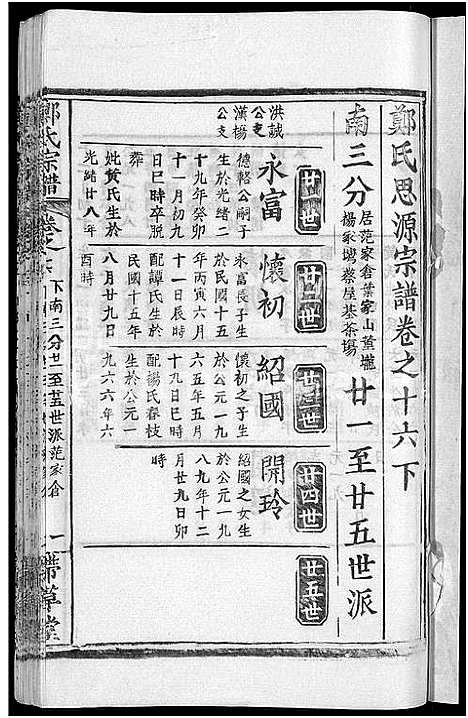 鄭氏思源宗譜卷之十六下
南三分
居范家倉葉家山董壠
楊家塆蔡屋基茶塲
廿一至廿五世派
廿一世
洪誠
公支
漢楊
公支
永富
德輅公嗣子
生於光緒二
十九年癸卯
十一月初九
日巳時卒脱
葬
妣黄氏生於
光緒廿八年
酉時
廿二世
懷初
永富長子生
於民國十五
年丙寅六月
十一日辰時
配譚氏生於
民國十五年
八月廿九日
廿三世
紹國
懷初之子生
於公元一九
六五年五月
十九日巳時
配楊氏春枝
生於公元一
九六六年六
廿四世
開玲
紹國之女生
於公元一九
八九年十二
月廿九日卯
時
廿五世
鄭氏宗譜
卷之十六
下南三分廿一至廿五世派范家倉
一
帶草堂